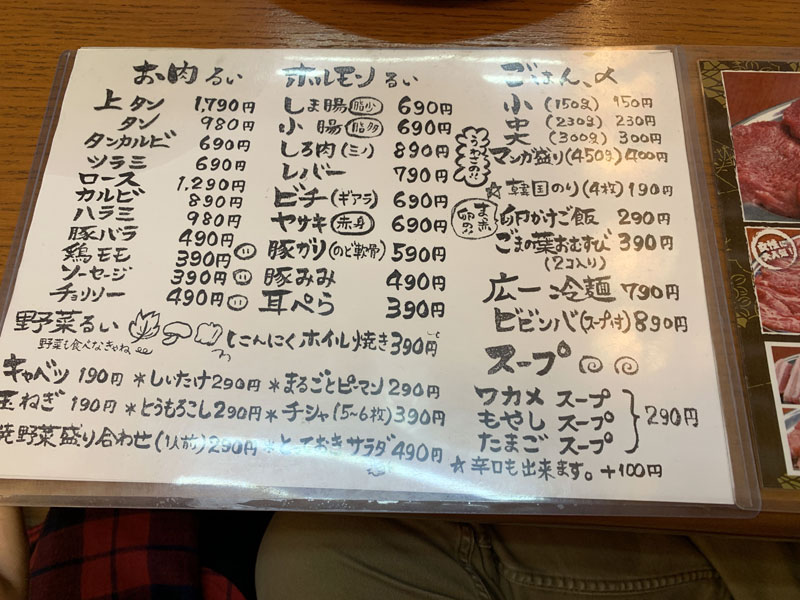 お肉るい
上タン 1,790円
タン 980円
タンカルビ 690円
ツラミ 690円
ロース 1,290円
カルビ 890円
ハラミ 980円
豚バラ 490円
鶏モモ 390円
ソーセージ 390円
チョリソー 490円
ホルモンるい
しま腸(脂少) 690円
小腸(脂多) 690円
しろ肉(ミノ) 890円
レバー 790円
ビチ(ギアラ) 690円
ヤサキ(赤身) 690円
豚ガリ(のど軟骨) 590円
豚みみ 490円
耳ぺら 390円
野菜るい
野菜も食べなきゃね
にんにくホイル焼き390円
キャベツ 190円 *しいたけ290円 *まるごとピーマン290円
玉ねぎ 190円 *とうもろこし290円 *チシャ(5~6枚)390円
焼野菜盛り合わせ(1人前)290円 *とっておきサラダ490円
ごはん、〆
小(150g) 150円
中(230g) 230円
大(300g) 300円
マンガ盛り(450g)400円
☆韓国のり(4枚)190円
卵かけご飯 290円
ごまの葉おむすび390円
(2コ入り)
広一冷麺790円
ビビンバ(スープ付)890円
スープ
ワカメスープ
もやしスープ 290円
たまごスープ
☆辛口も出来ます。+100円